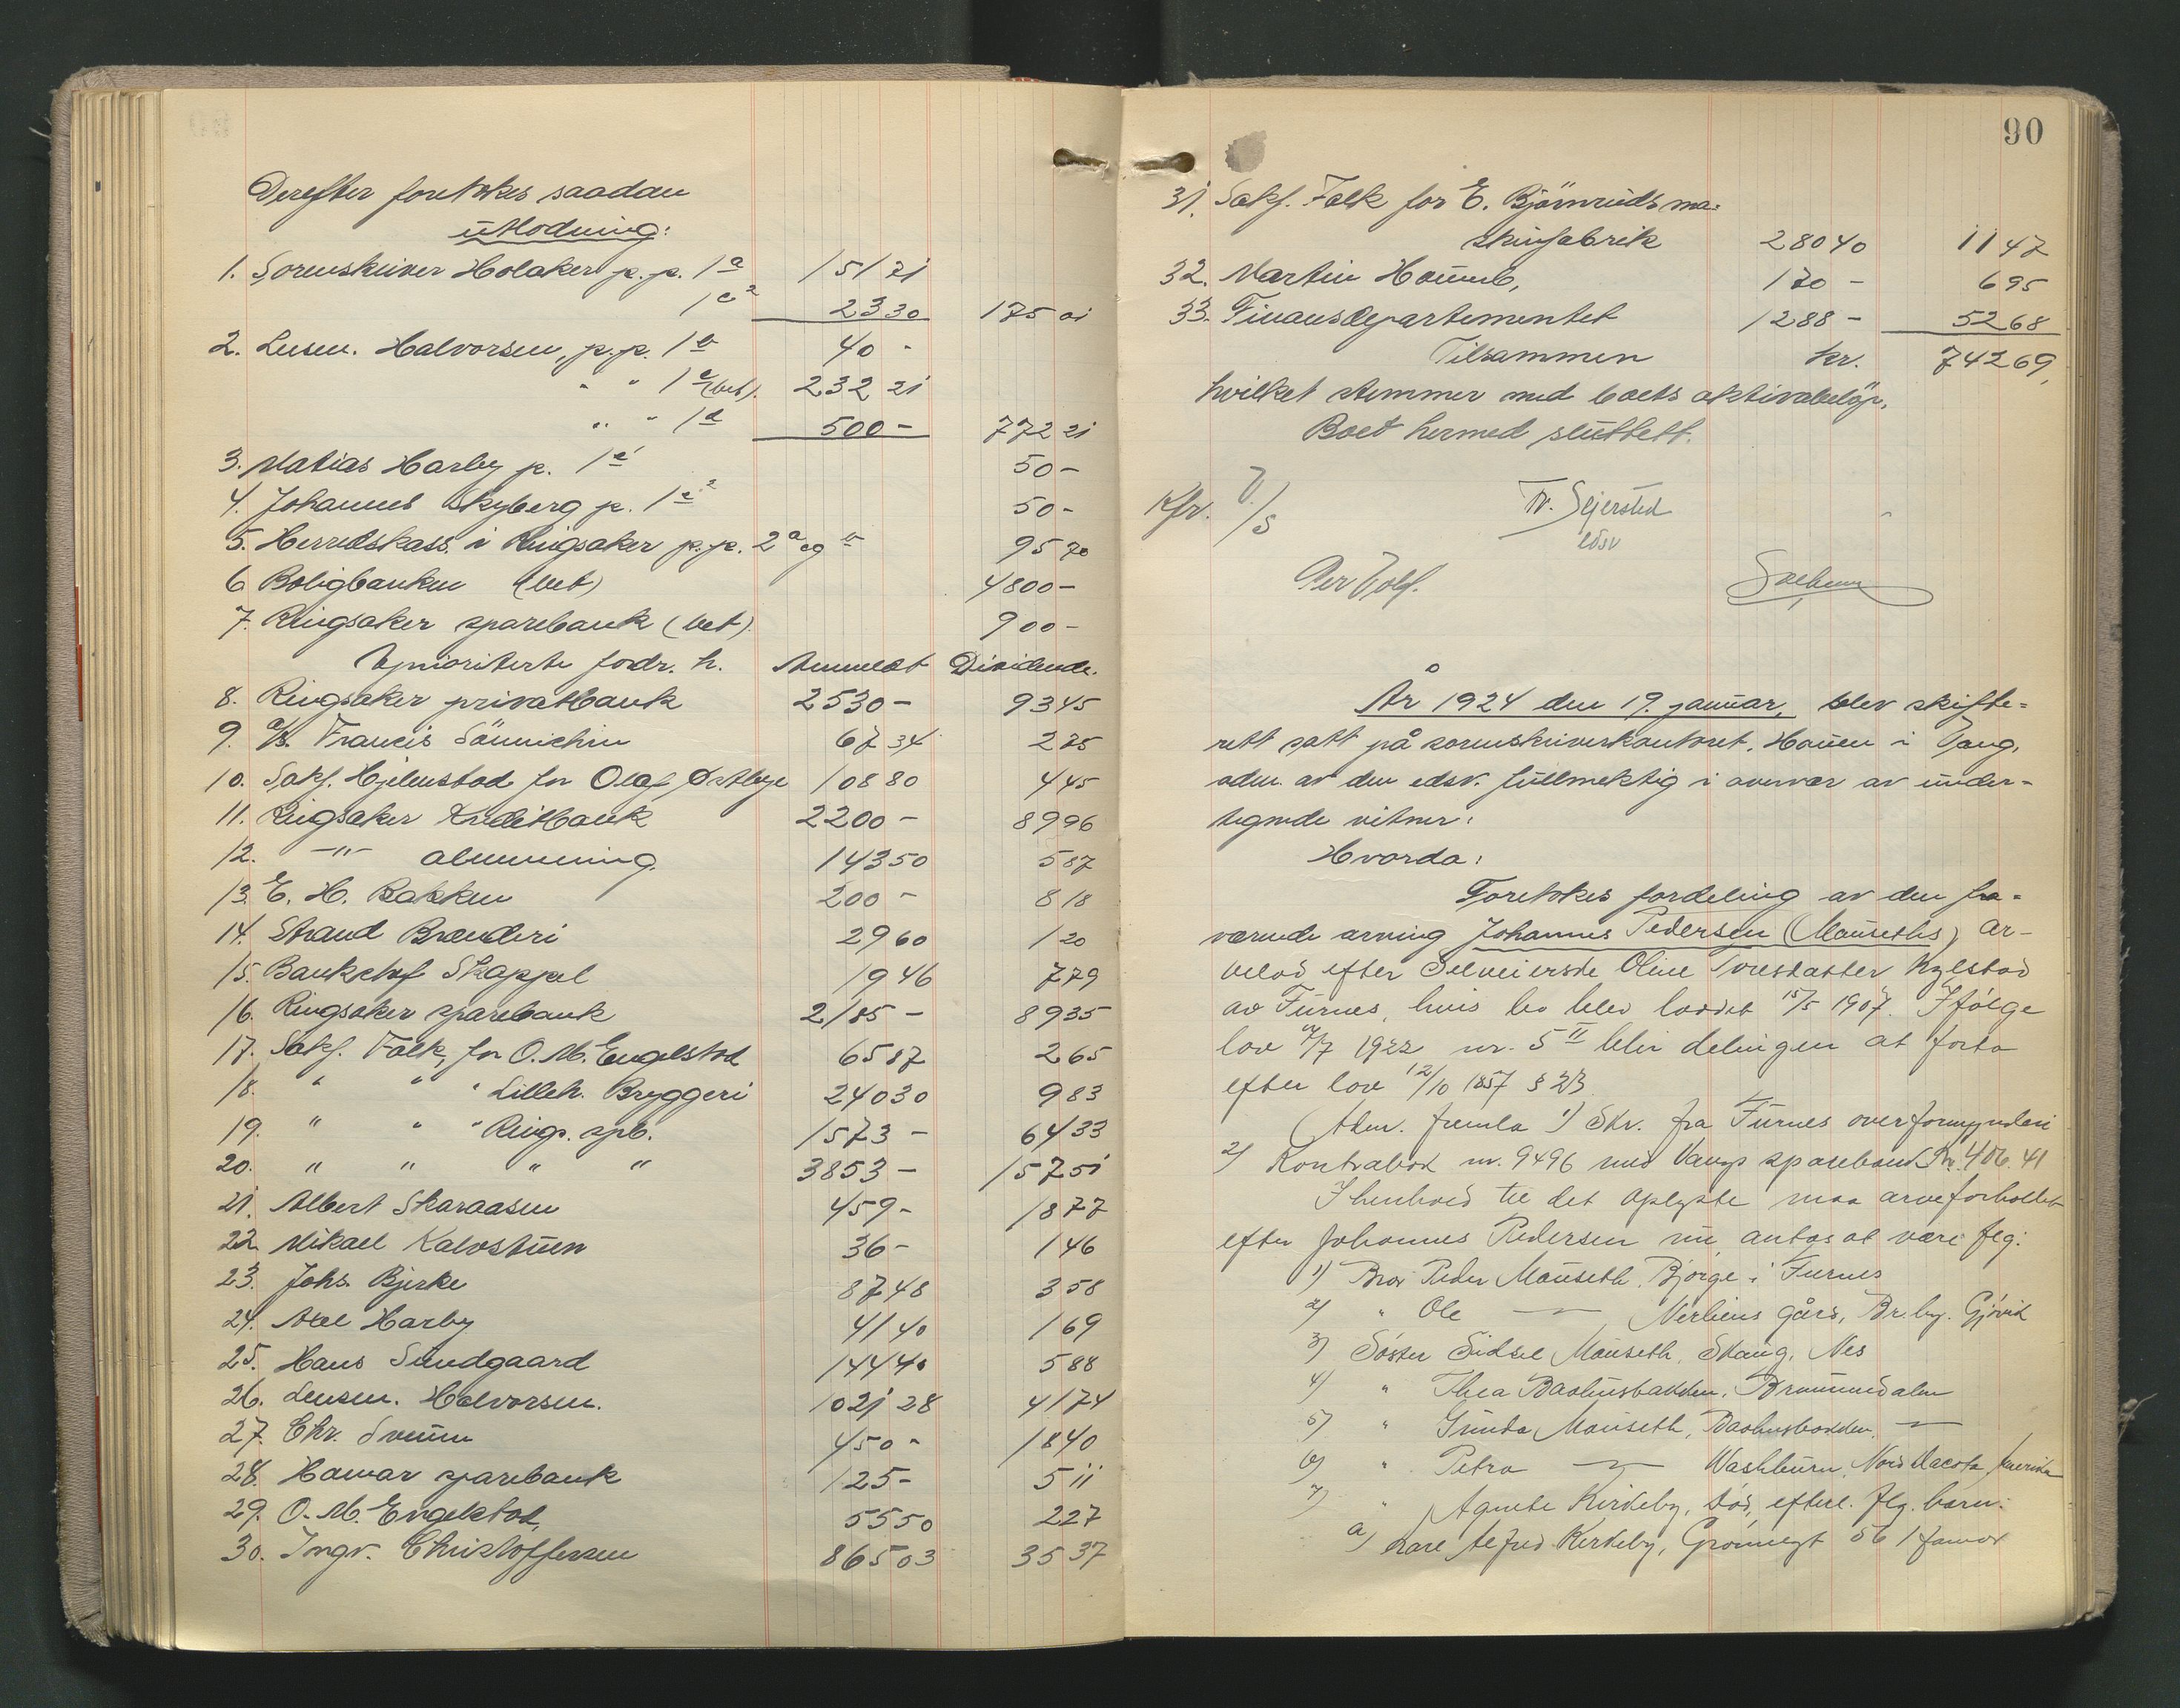 Derefter foretokes saadan
utlodning:
1. Sorenskriver Holaker p.p. 1 a 151 71
1 c 2 23 30 175 01
2. Lensm. Halvorsen, p.p. 1 b 40 -
" " 1 c (bet). 232 21
" " 1 d 500 - 772 21
3. Matias Harby p. 1 e 50 -
4. Johannes Skyberg p. 1 e 2 50 -
5. Herredskass. i Ringsaker p.p. 2 a og b 95 70
6 Boligbanken (bet) 4800 -
7. Ringsaker sparebank (bet). 900 -
Uprioriterte fordr. h. Anmeldt Dividende.
8. Ringsaker privatbank 2530 - 93 45
9. A/S. Francis Sönnichsen 67 34 2 75
10. Sakf. Hjelmstad for Olaf Østbye 108 80 4 45
11. Ringsaker Kreditbank 2200 - 89 96
12. -"- almenning. 143 50 5 87
13. E. H. Bakken 200 - 8 18
14. Strand Brænderi 29 60 1 20
15. Bankchef Skappel 19 46 79
16. Ringsaker sparebank 2185 - 89 35
17. Sakf. Falk, for O. M. Engelstad 65 87 2 65
18. " " " Lilleh. Bryggeri 240 30 9 83
19. " " " Rings. spb. 1573 - 64 33
20. " " " " 3853 - 157 51
21. Albert Skaraasen 459 - 18 77
22. Mikael Kalvstuen 36 - 1 46
23. Johs. Bjerke 87 48 3 58
24. Axel Harby 41 40 1 69
25. Hans Sundgaard 144 40 5 88
26. Lensm. Halvorsen. 1021 28 41 74
27. Chr. Sveum 450 - 18 40
28. Hamar sparebank 125 - 5 11
29. O. M. Engelstad, 55 50 2 27
30. Ingv. Christoffersen 865 03 35 37
90
31. Sakf. Falk for E. Björnruds ma-
skinfabrik 280 40 11 47
32. Martin Homb, 170 - 6 95
33. Finansdepartementet 1288 - 52 68
Tilsammen kr. 7426 9,
hvilket stemmer med boets aktivabelöp.
Boet hermed sluttett.
Tr. Sejersted
edsv
Per Wolf.
År 1924 den 19. januar, blev skifte-
rett satt på sorenskriverkontoret, Homen i Vang,
adm. av den edsv. fullmektig i overvær av under-
tegnede vitner:
Hvorda:
Foretokes fordeling av den fra-
værende arving Johannes Pedersen (Mauseths) ar-
velod efter Selveierske Oline Torsdatter Kylstad
av Furnes, hvis bo blev loddet 15/5 1907. Ifølge
lov 14/7 1922 nr. 5 II blir delingen at foreta
efter lov 12/10 1857 § 23.
Adm. fremla 1) Skr. fra Furnes overformynderi
2) Kontrabok nr. 9496 med Vangs sparebank Kr. 406.41
I henhold til det oplyste maa arveforholdet
efter Johannes Pedersen nu antas at være flg:
1) Bror Peder Mauseth, Bjørge i Furnes
2) " Ole —"— Nerliens gård, Br.by. Gjøvik
3) Søster Sidsel Mauseth, Skaug, Nes
4) " Thea Baahusbakken, Brummundalen
5) " Gunda Mauseth, Baahusbakken, —"—
6) " Petra —"— Washburn, Nord Dacota, Amerika
7) " Agnete Kirkeby, død, efterl. flg. barn:
a) Kåre Alfred Kirkeby, Grønnegt 56 Hamar